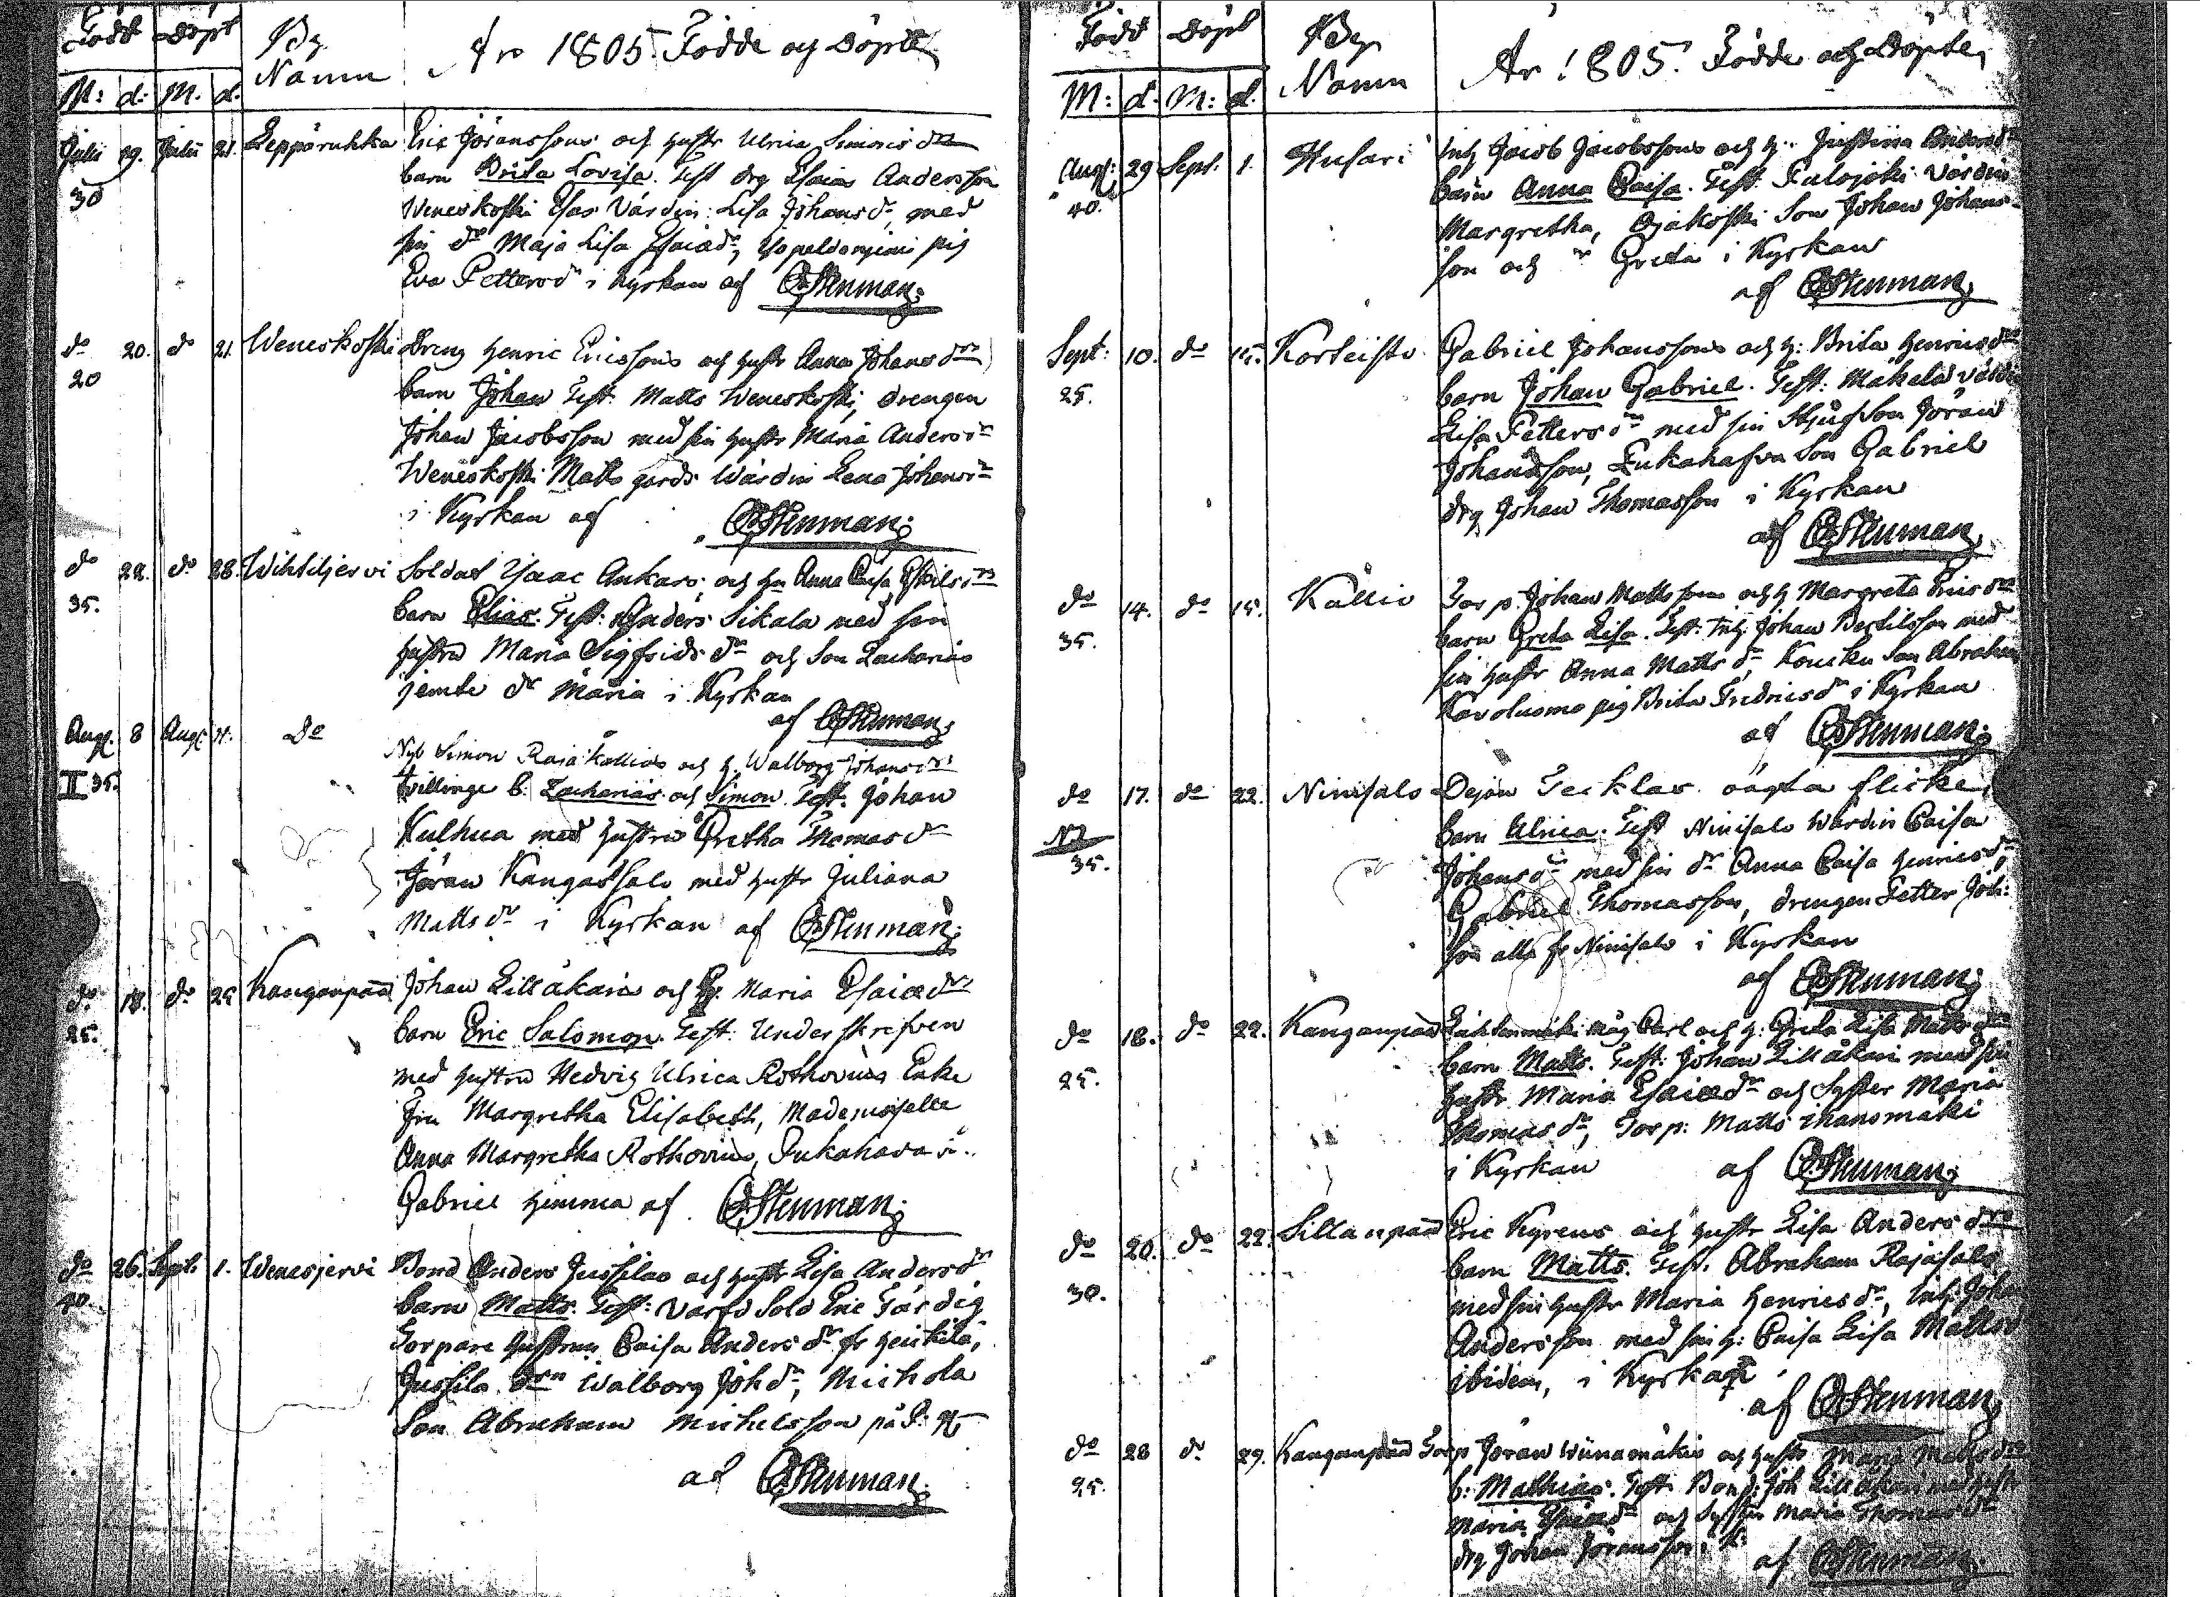 Född Döpt By Namn År 1805. Födde och Döpte
M: d: M. d.
Julii 19. Julii 21. Leppäruhka Eric Jöranssons och hustr Ulrica Simonsdrs
30 barn Brita Lovisa. Test drg Esaias Andersson
Weneskoski Esas Värdin: Lisa Johansdr med
sin dr Maja Lisa Esaiædr, pig
Eva Pettersdr i Kyrkan af CStenman.
do 20. do 21. Weneskoski Dreng Henric Ericssons och hustr Anna Johansdrs
20 barn Johan Test. Matts Weneskoski, drengen
Johan Jacobsson med sin hustr Maria Andersdr
Weneskoski Matts gårds Wärdin Lena Johansdr
i Kyrkan af CStenman.
do 22. do 28. Wihtiljervi Soldat Isaac Ankars och hu Anna Caisa
35. barn Elias. Test: Anders Sikala med sin
hustru Maria Sigfridsdr och Son Zacharias
jemte dr Maria i Kyrkan
af CStenman.
Aug. 8 Aug. 11. Do Nyb Simon Rajakallios och h. Walborg Johansdrs
II 35. tvillinge b. Zacharias och Simon. Test. Johan
Kulhua med hustru Gretha Thomasdr
Jöran Kangassalo med hustr Juliana
Mattsdr i Kyrkan af CStenman.
do 18. do 25 Kanganpää Johan Lilläkäis och H. Maria Esaiædrs
25. barn Eric Salomon. Test. Underskrifven
med hustru Hedvig Ulrica Rothovius Enke
Fru Margretha Elisabeth, Mademoiselle
Anna Margretha Rothovius,
Gabriel hemma af CStenman.
do 26. Sept. 1. Wenesjervi Bond Anders Jussilas och hustr Lisa Andersdr
40. barn Matts. Test: Varfd Sold Eric Färdig
Torpare hustrun Caisa Andersdr fr Heikilä,
Jussila drn Walborg Johdr, Michola
Son Abraham Michelsson
af CStenman.
Född Döpt By Namn År 1805. Födde och Döpte
M: d. M: d.
Aug: 29 Sept. 1. Husari Inh Jacob Jacobssons och h. Justiina Andersdr
40. barn Anna Caisa. Test. Värdin
Margretha, Ojakoski Son Johan Johans-
son och dr Greta i Kyrkan
af CStenman.
Sept: 10. do 15. Korteisto Gabriel Johanssons och h: Brita Henricsdrs
25. barn Johan Gabriel. Test: Makala värdin
Lisa Pettersdr med sin Stjufson Jöran
Johansson, Son Gabriel
drg Johan Thomasson i Kyrkan
af CStenman.
do 14. do 15. Kallio Torp. Johan Mattssons och h Margreta Ericsdrs
35. barn Greta Lisa. Test. Inh. Johan Bertilsson med
sin hustr Anna Mattsdr, Son Abraham
pig Brita Fredricsdr i Kyrkan
af CStenman.
do 17. do 22. Niinisalo Dejan Teklas oägta flicke
N2
35. barn Ulrica. Test Niinisalo Wärdin Caisa
Johansdr med sin dr Anna Caisa Henricsdr,
Gabriel Thomasson, drengen Petter Joh:
son alla fr Niinisalo i Kyrkan
af CStenman.
do 18. do 22. Kanganpää måg Carl och h: Greta Lisa Mattsdrs
25. barn Matts. Test: Johan Lilläkäis med sin
hustr Maria Esaiædr och Syster Maria
Thomasdr, Torp: Matts
i Kyrkan af CStenman.
do 20. do 22. Sillanpää Eric Kyrens och hustr Lisa Andersdrs
30. barn Matts. Test. Abraham Rajasalo
med sin hustr Maria Henricsdr, Inh. Johan
Andersson med sin h: Caisa Lisa Mattsdr
ibidem, i Kyrkan
af CStenman.
do 28 do 29. Kanganpää Torp Jöran Wiinamäkis och hustr Maria Mattsdrs
25. b: Mathias. Test. Bond. Joh Lilläkäis med hustr
Maria Esaiædr och Syster Maria Thomasdr
drg Johan Jöransson i K.
af CStenman.